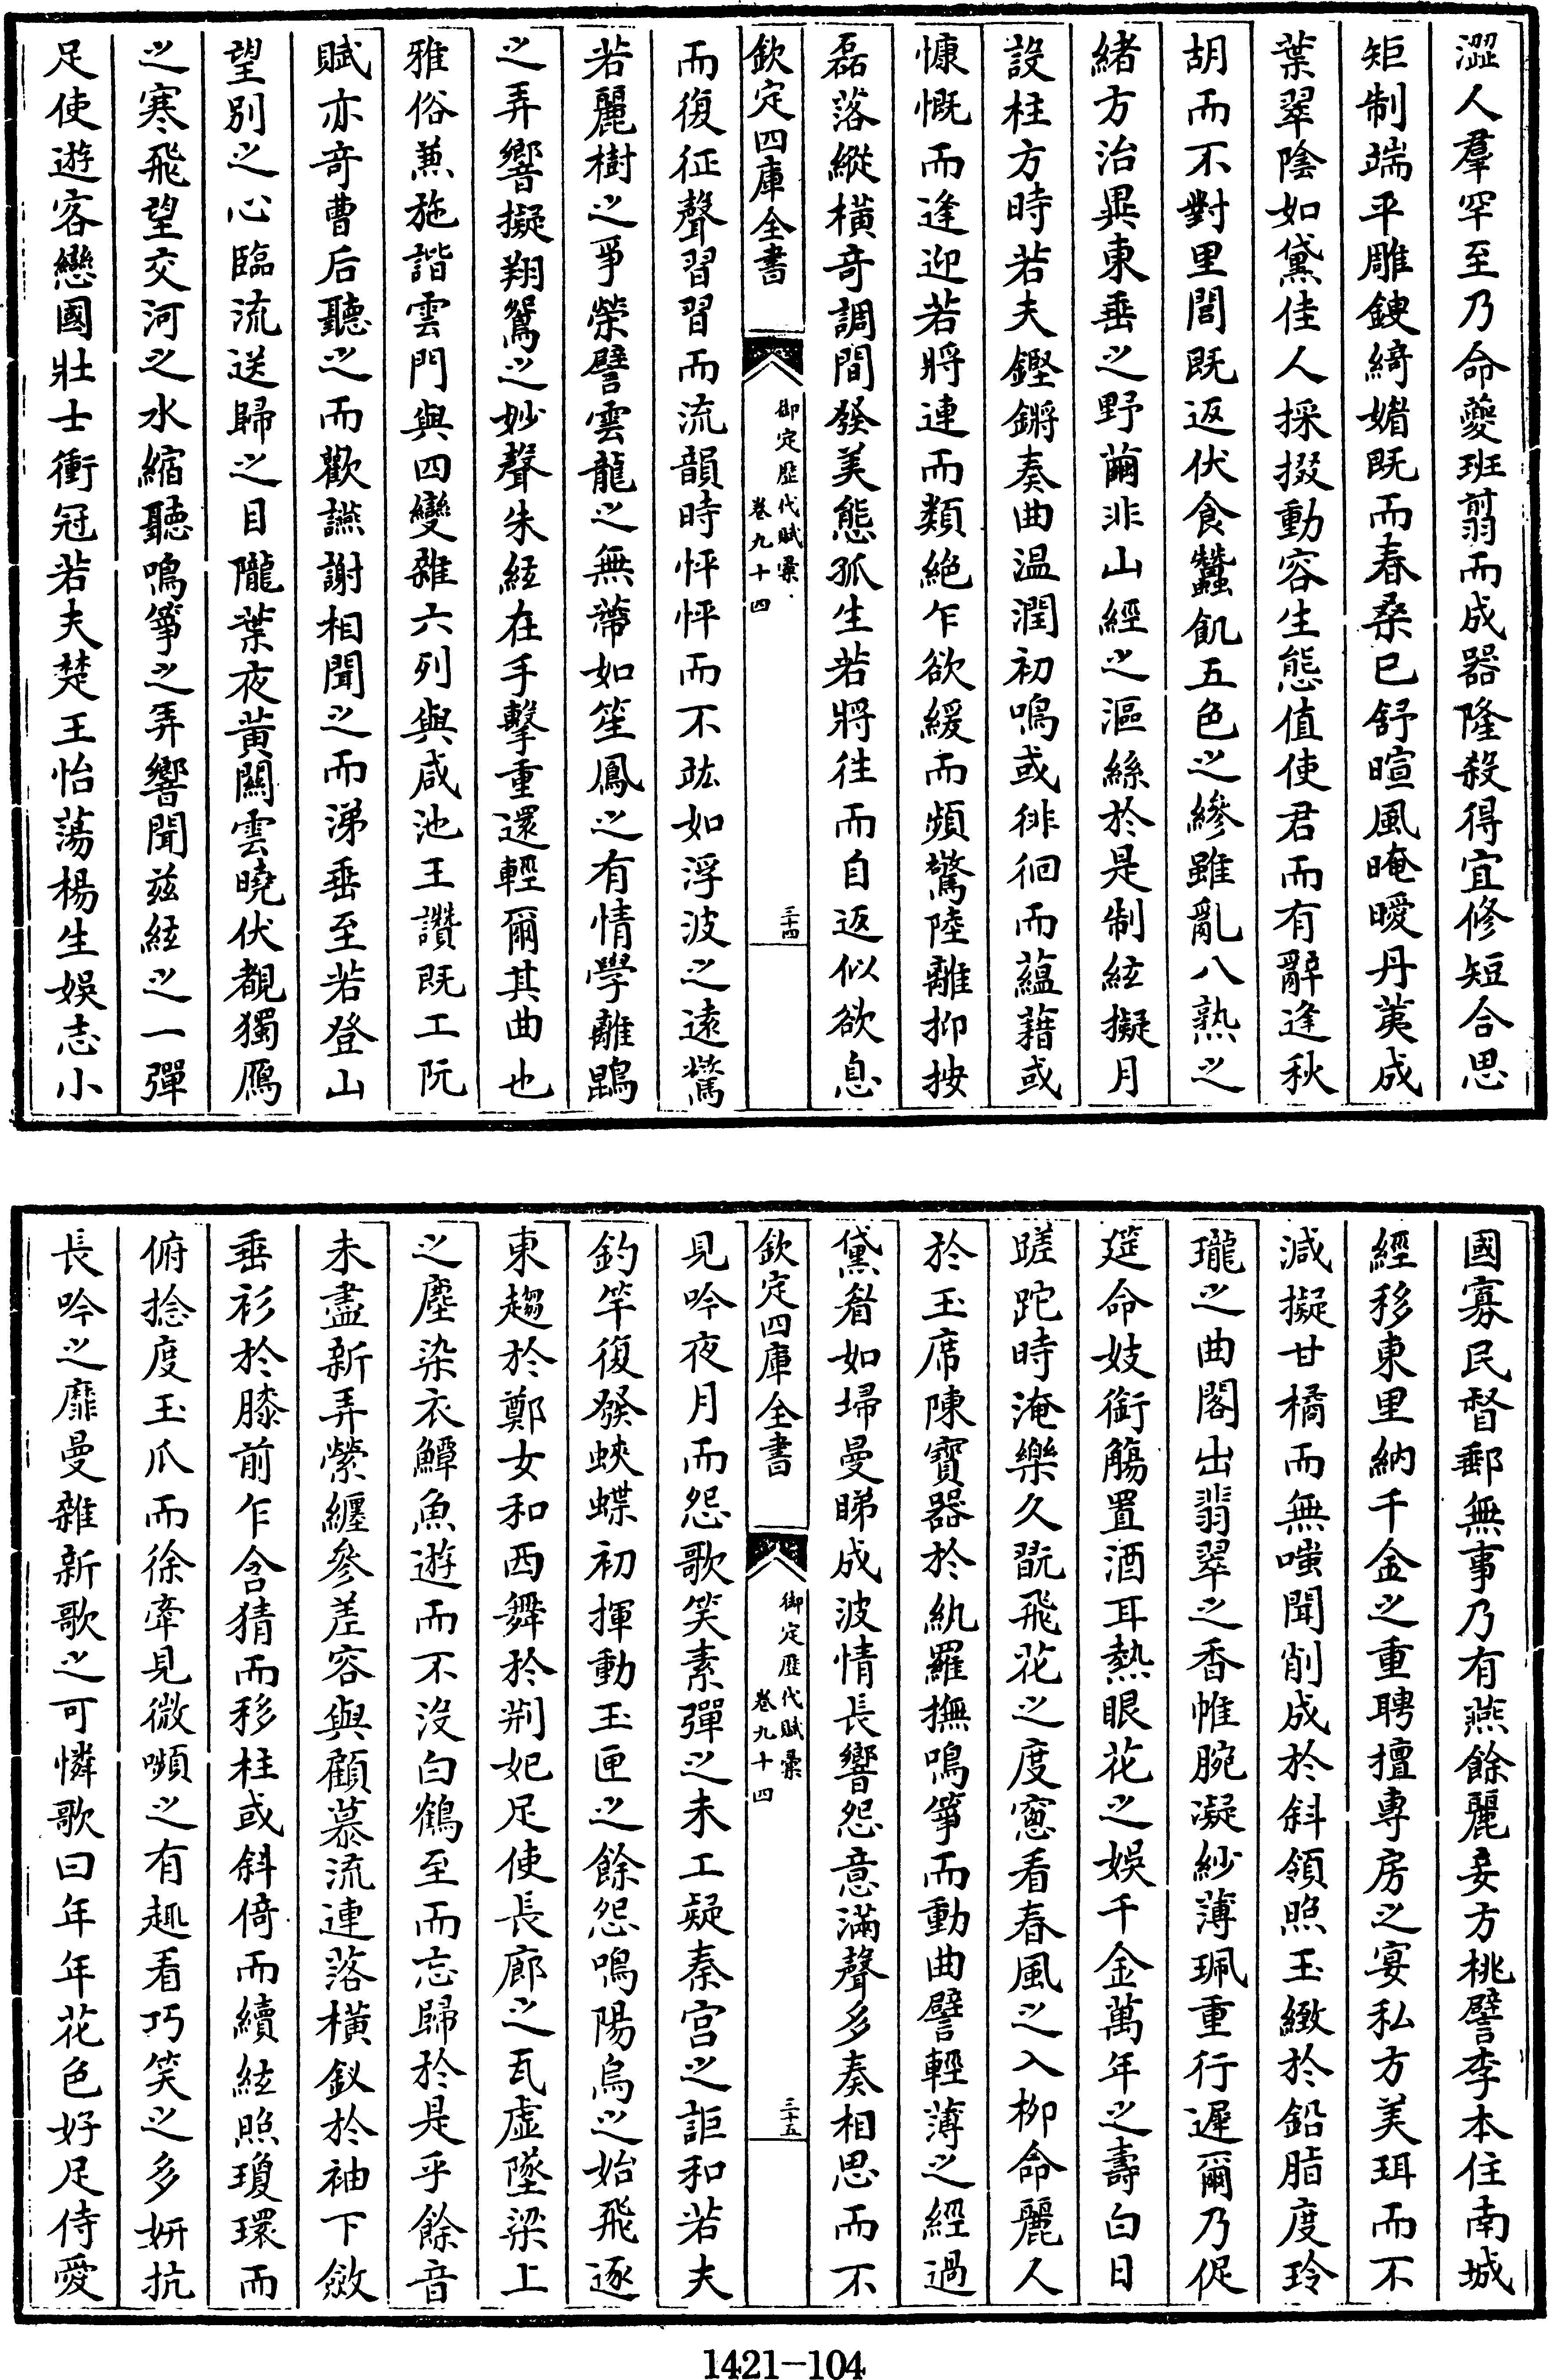 澀人羣罕至乃命夔班翦而成器隆殺得宜修短合思
矩制端平雕鎪綺媚既而春桑已舒暄風晻曖丹萸成
葉翠陰如黛佳人採掇動容生態值使君而有辭逢秋
胡而不對里閭既返伏食蠶飢五色之縿雖亂八熟之
緒方治異東垂之野繭非山經之漚絲於是制絃擬月
設柱方時若夫鏗鏘奏曲温潤初鳴或徘徊而蘊藉或
慷慨而逢迎若將連而類絶乍欲緩而頻驚陸離抑按
磊落縱橫奇調間發美態孤生若將往而自返似欲息
欽定四庫全書
御定歷代賦彙
卷九十四
三十四
而復征聲習習而流韻時怦怦而不㳀如浮波之遠驚
若麗樹之爭榮譬雲龍之無蔕如笙鳳之有情學離鵾
之弄響擬翔鴛之妙聲朱絃在手擊重還輕爾其曲也
雅俗兼施諧雲門與四變雜六列與咸池王讚既工阮
賦亦奇曹后聽之而歡讌謝相聞之而涕垂至若登山
望別之心臨流送歸之目隴葉夜黄關雲曉伏覩獨鴈
之寒飛望交河之水縮聽鳴箏之弄響聞兹絃之一彈
足使遊客戀國壯士衝冠若夫楚王怡蕩楊生娱志小
國寡民督郵無事乃有燕餘麗妾方桃譬李本住南城
經移東里納千金之重聘擅專房之宴私方美珥而不
減擬甘橘而無嗤聞削成於斜領照玉緻於鉛脂度玲
瓏之曲閣出翡翠之香帷腕凝紗薄珮重行遲爾乃促
筵命妓銜觴置酒耳熱眼花之娱千金萬年之壽白日
蹉跎時淹樂久翫飛花之度窻看春風之入栁命麗人
於玉席陳寶器於紈羅撫鳴箏而動曲譬輕薄之經過
黛眉如埽曼睇成波情長響怨意滿聲多奏相思而不
欽定四庫全書
御定歷代賦彙
卷九十四
三十五
見吟夜月而怨歌笑素彈之未工疑秦宫之詎和若夫
釣竿復發蛺蝶初揮動玉匣之餘怨鳴陽烏之始飛逐
東趨於鄭女和西舞於荆妃足使長廊之瓦虚墜梁上
之塵染衣鱏魚遊而不没白鶴至而忘歸於是乎餘音
未盡新弄縈纏參差容與顧慕流連落橫釵於袖下斂
垂衫於膝前乍含猜而移柱或斜倚而續絃照瓊環而
俯捻度玉爪而徐牽見微嚬之有趣看巧笑之多妍抗
長吟之靡曼雜新歌之可憐歌曰年年花色好足侍愛
1421-104